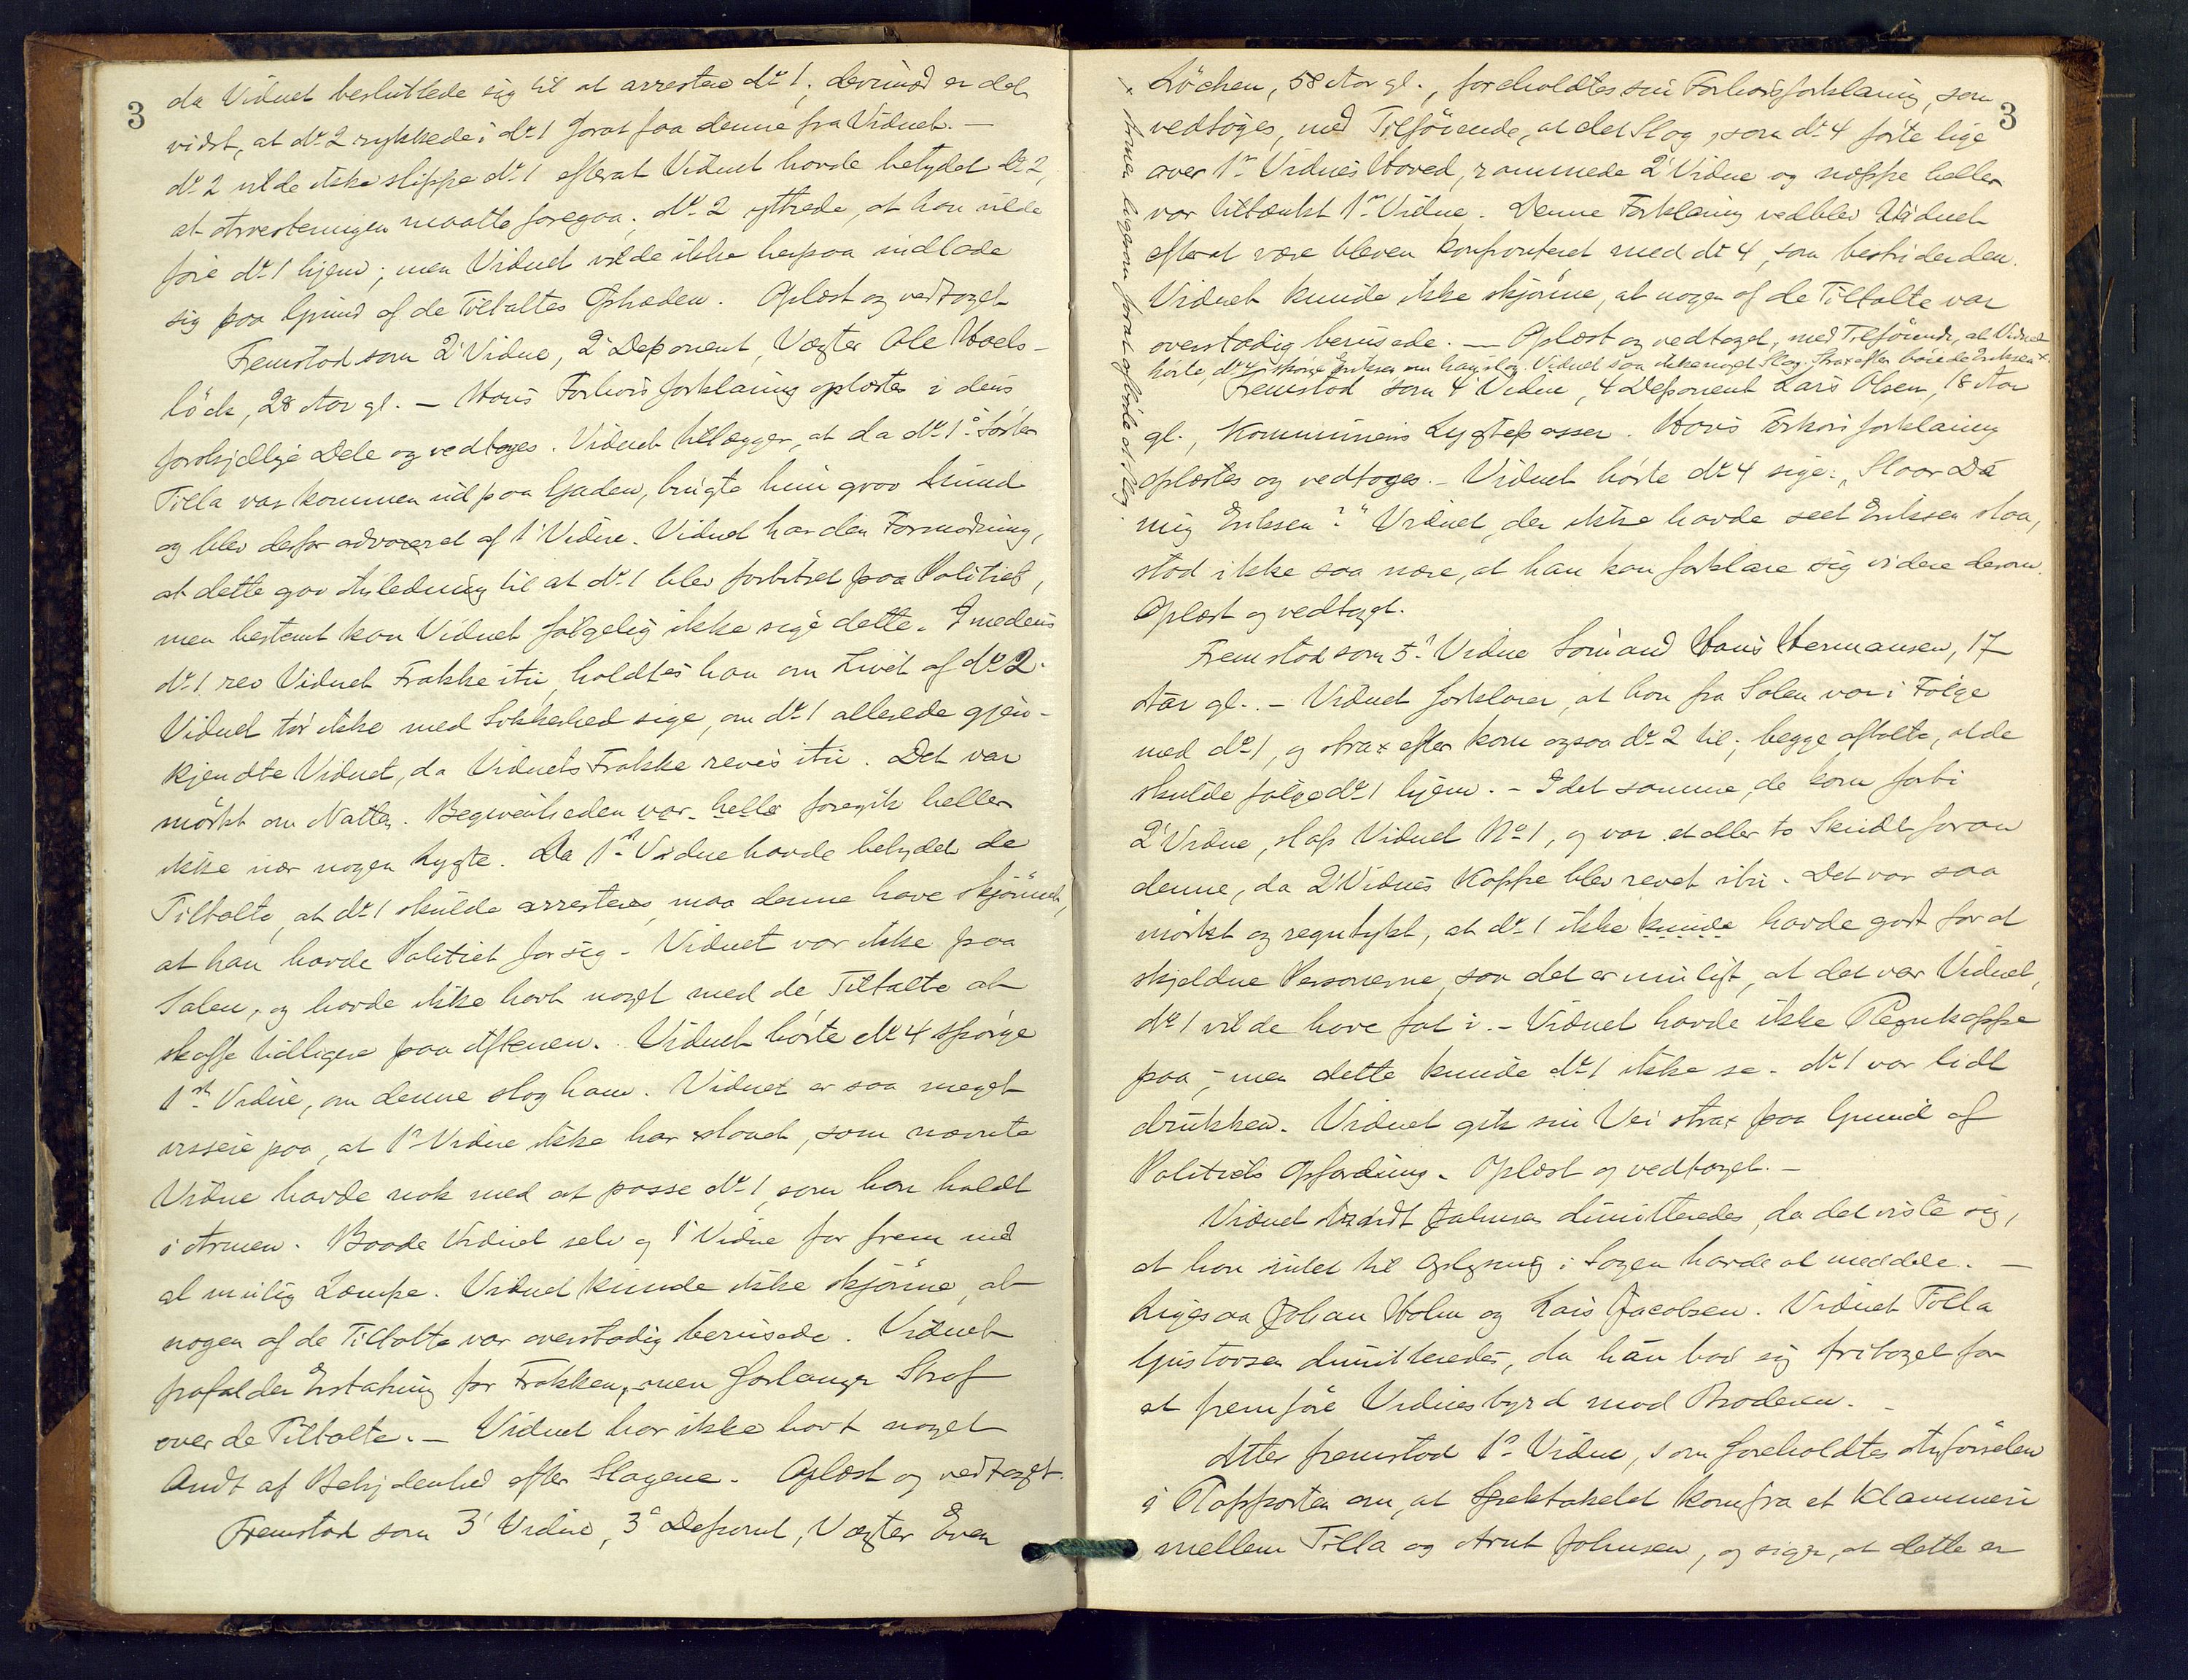 3
da Vidnet besluttede sig til at arrestere No 1; derimod er det
vidst, at No 2 rykkede i No 1 forat faa denne fra Vidnet. —
No 2 vilde ikke slippe No 1 efterat Vidnet havde betydet No 2,
at Arresteringen maatte foregaa. No 2 yttrede, at han vilde
føre No 1 hjem; men Vidnet vilde ikke herpaa indlade
sig paa Grund af de Tiltaltes Optræden. Oplæst og vedtaget
Fremstod som 2' Vidne, 2' Deponent, Vægter Ole
løck, 28 Aar gl. — Hans Forhørsforklaring oplæstes i dens
forskjellige Dele og vedtoges. Vidnet tillægger, at da No 1's Søster
Tilla var kommen ud paa Gaden, brugte hun grov Mund
og blev derfor advaret af 1' Vidne. Vidnet har den Formodning,
at dette gav Anledning til at No 1 blev forbitret paa Politiet,
men bestemt kan Vidnet følgelig ikke sige dette. Imedens
No 1 rev Vidnet Frakke itu, holdtes han om Livet af No 2.
Vidnet tør ikke med Sikkerhed sige, om No 1 allerede gjen-
kjendte Vidnet, da Vidnets Frakke reves itu. Det var
mørkt om Natten. Begivenheden var heller foregik heller
ikke nær nogen Lygte. Da 1ste Vidne havde betydet de
Tiltalte, at No 1 skulde arresteres, maa denne have skjønnet,
at han havde Politiet for sig. Vidnet var ikke paa
Salen, og havde ikke havt noget med de Tiltalte at
skaffe tidligere paa Aftenen. Vidnet hørte No 4 spørge
1ste Vidne, om denne slog ham. Vidnet er saa meget
vissere paa, at 1' Vidne ikke har slaaet, som nævnte
Vidne havde nok med at passe No 1, som han holdt
i Armen. Baade Vidnet selv og 1' Vidne for frem med
al mulig Læmpe. Vidnet kunde ikke skjønne, at
nogen af de Tiltalte var overstadig berusede. Vidnet
frafalder Erstatning for Frakken, men forlanger Straf
over de Tiltalte. — Vidnet har ikke havt noget
Ondt af Betydenhed efter Slagene. Oplæst og vedtaget.
Fremstod som 3' Vidne, 3' Deponent, Vægter Even
3
Løchen, 58 Aar gl., foreholdtes sin Forhørsforklaring, som
vedtoges, med Tilføiende, at det Slag, som No 4 førte lige
over 1ste Vidnes Hoved, rammede 2' Vidne og neppe heller
var tiltænkt 1ste Vidne. Denne Forklaring vedblev Vidnet
efterat være bleven konfronteret med No 4, som bestrider den.
Vidnet kunde ikke skjønne, at nogen af de Tiltalte var
overstadig berusede. — Oplæst og vedtaget, med Tilføiende, at Vidnet
hørte, No 4 spørge Eriksen om han slog. Vidnet saa ikke noget Slag. Strax efter bøiede Eriksen x
Fremstod som 4' Vidne, 4' Deponent Lars Olsen, 18 Aar
gl., Kommunens Lygtepasser. Hans Forhørsforklaring
oplæstes og vedtoges. — Vidnet hørte No 4 sige: "Slaar Du
mig Eriksen?" Vidnet, der ikke havde seet Eriksen slaa,
stod ikke saa nære, at han kan forklare sig videre derom.
Oplæst og vedtaget.
Fremstod som 5' Vidne Sømand Hans Hermansen, 17
Aar gl. — Vidnet forklarer, at han fra Salen var i Følge
med No 1, og strax efter kom ogsaa No 2 til; begge aftalte, at de
skulde følge No 1 hjem. — I det samme, de kom forbi
2' Vidne, slap Vidnet No 1, og var et eller to Skridt foran
denne, da 2' Vidnes Kappe blev revet itu. Det var saa
mørkt og regntykt, at No 1 ikke kunde havde godt for at
skjeldne Personerne, saa det er muligt, at det var Vidnet,
No 1 vilde have fat i. — Vidnet havde ikke Regnkappe
paa; men dette kunde No 1 ikke se. No 1 var lidt
drukken. Vidnet gik sin Vei strax paa Grund af
Politiets Opfordring. Oplæst og vedtaget. —
Vidnet Johnsen dimitteredes, da det viste sig,
at han intet til Oplysning i Sagen havde at meddele. —
Ligesaa Johan Holm og Lars Jacobsen. Vidnet Tilla
Gustavsen dimitteredes, da hun bad sig fritaget for
at fremføre Vidnesbyrd mod Broderen. —
Atter fremstod 1ste Vidne, som foreholdtes Anførselen
i Rapporten om, at Spektakelet kom fra et Klammeri
mellem Tilla og Arnt Johnsen, og siger, at dette er
x Arme ligesom forat afbøde et Slag.